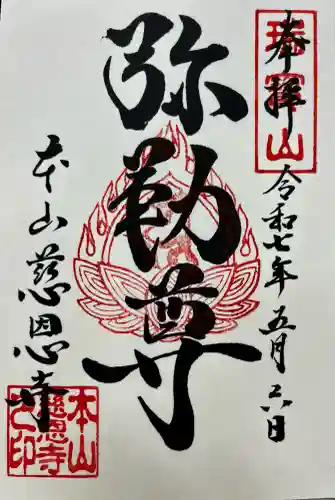 奉拝
令和七年五月六日
弥勒尊
本山慈恩寺
瑞宝山
本山
慈恩寺
之印